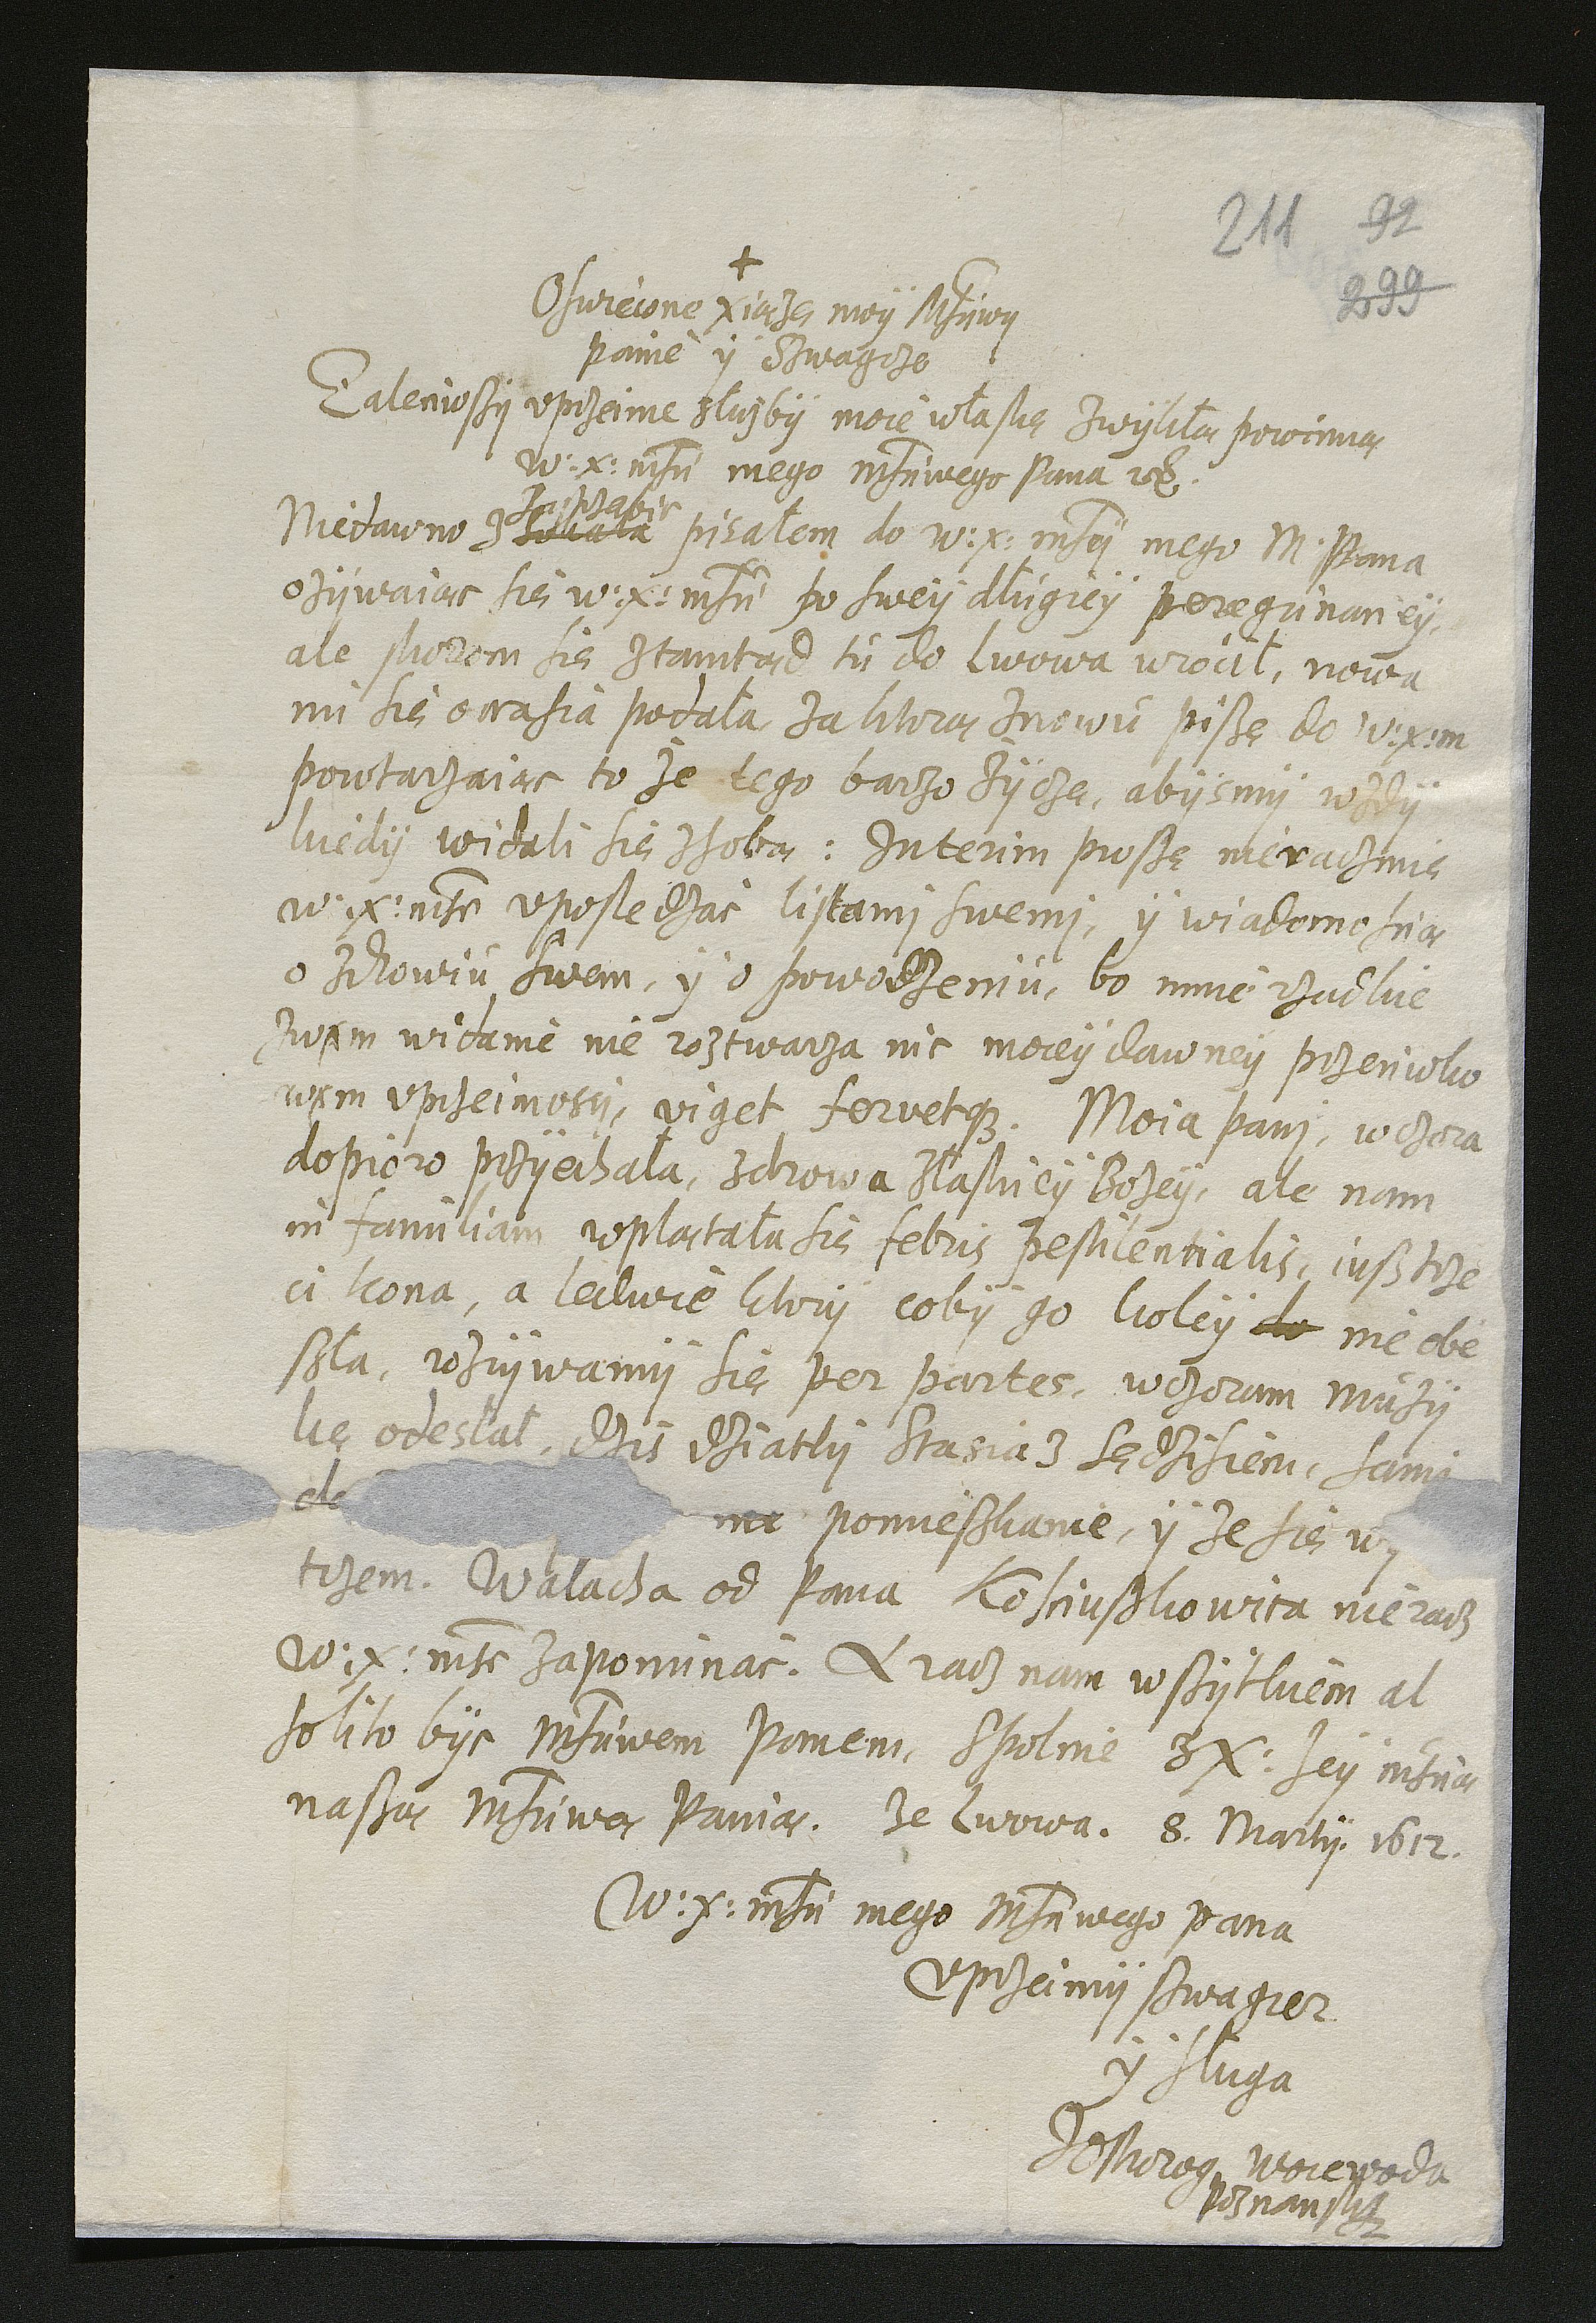 211 92
299
+
Oswiecone Xiąże moy Mściwy
panie y Szwagrze
Zaleciwszy vprzeime służby moie w łaskę zwykłą powinną
w: x: mści mego mściwego Pana etc.
Niedawno z Sokala pisałem do w: x: mści mego M. Pana
ozywaiąc się w: x: mści po swey długiey peregrinaciey,
ale skorom się ztamtąd tu do Lwowa wrócił, nowa
mi się occasia podała za ktorą znowu piszę do w: x: m
powtarzaiąc to że tego barzo życzę, abysmy wżdy
kiedy widali się z sobą: Interim proszę nieraczmię
w: x: mść vposledzać listami swemi, y wiadomością
o zdrowiu swem, y o powodzeniu, bo mnie rzadkie
z wxm widanie nie roztwarza nic moiey dawney przeciwko
wxm vprzeimosci, viget feruetq. Moia pani, wczora
dopioro przyiechała, zdrowa z łaskiey Bożey, ale nam
in familiam wplątała się febris pestilentialis, iusz trze
ci kona, a ledwie ktory coby go koley do nie obe
szła, rożrywamy się per partes, wczoram muzy
kę odesłał, dziś dziatki Stasia z Sędzisiem, sami
do
me pomieszkanie, y że się w
trzem. Wałacha od Pana Kosciuszkowica nieracz
w: x: mść zapominać. Y racz nam wszytkiem al
solito być mściwem Panem, Spolnie z X: Jey mścią
naszą Mściwą Panią. Ze Lwowa. 8. Martij. 1612.
W: x: mści mego mściwego pana
vprzeimy szwagier
y sługa
J Ostrorog woiewoda
Poznanski